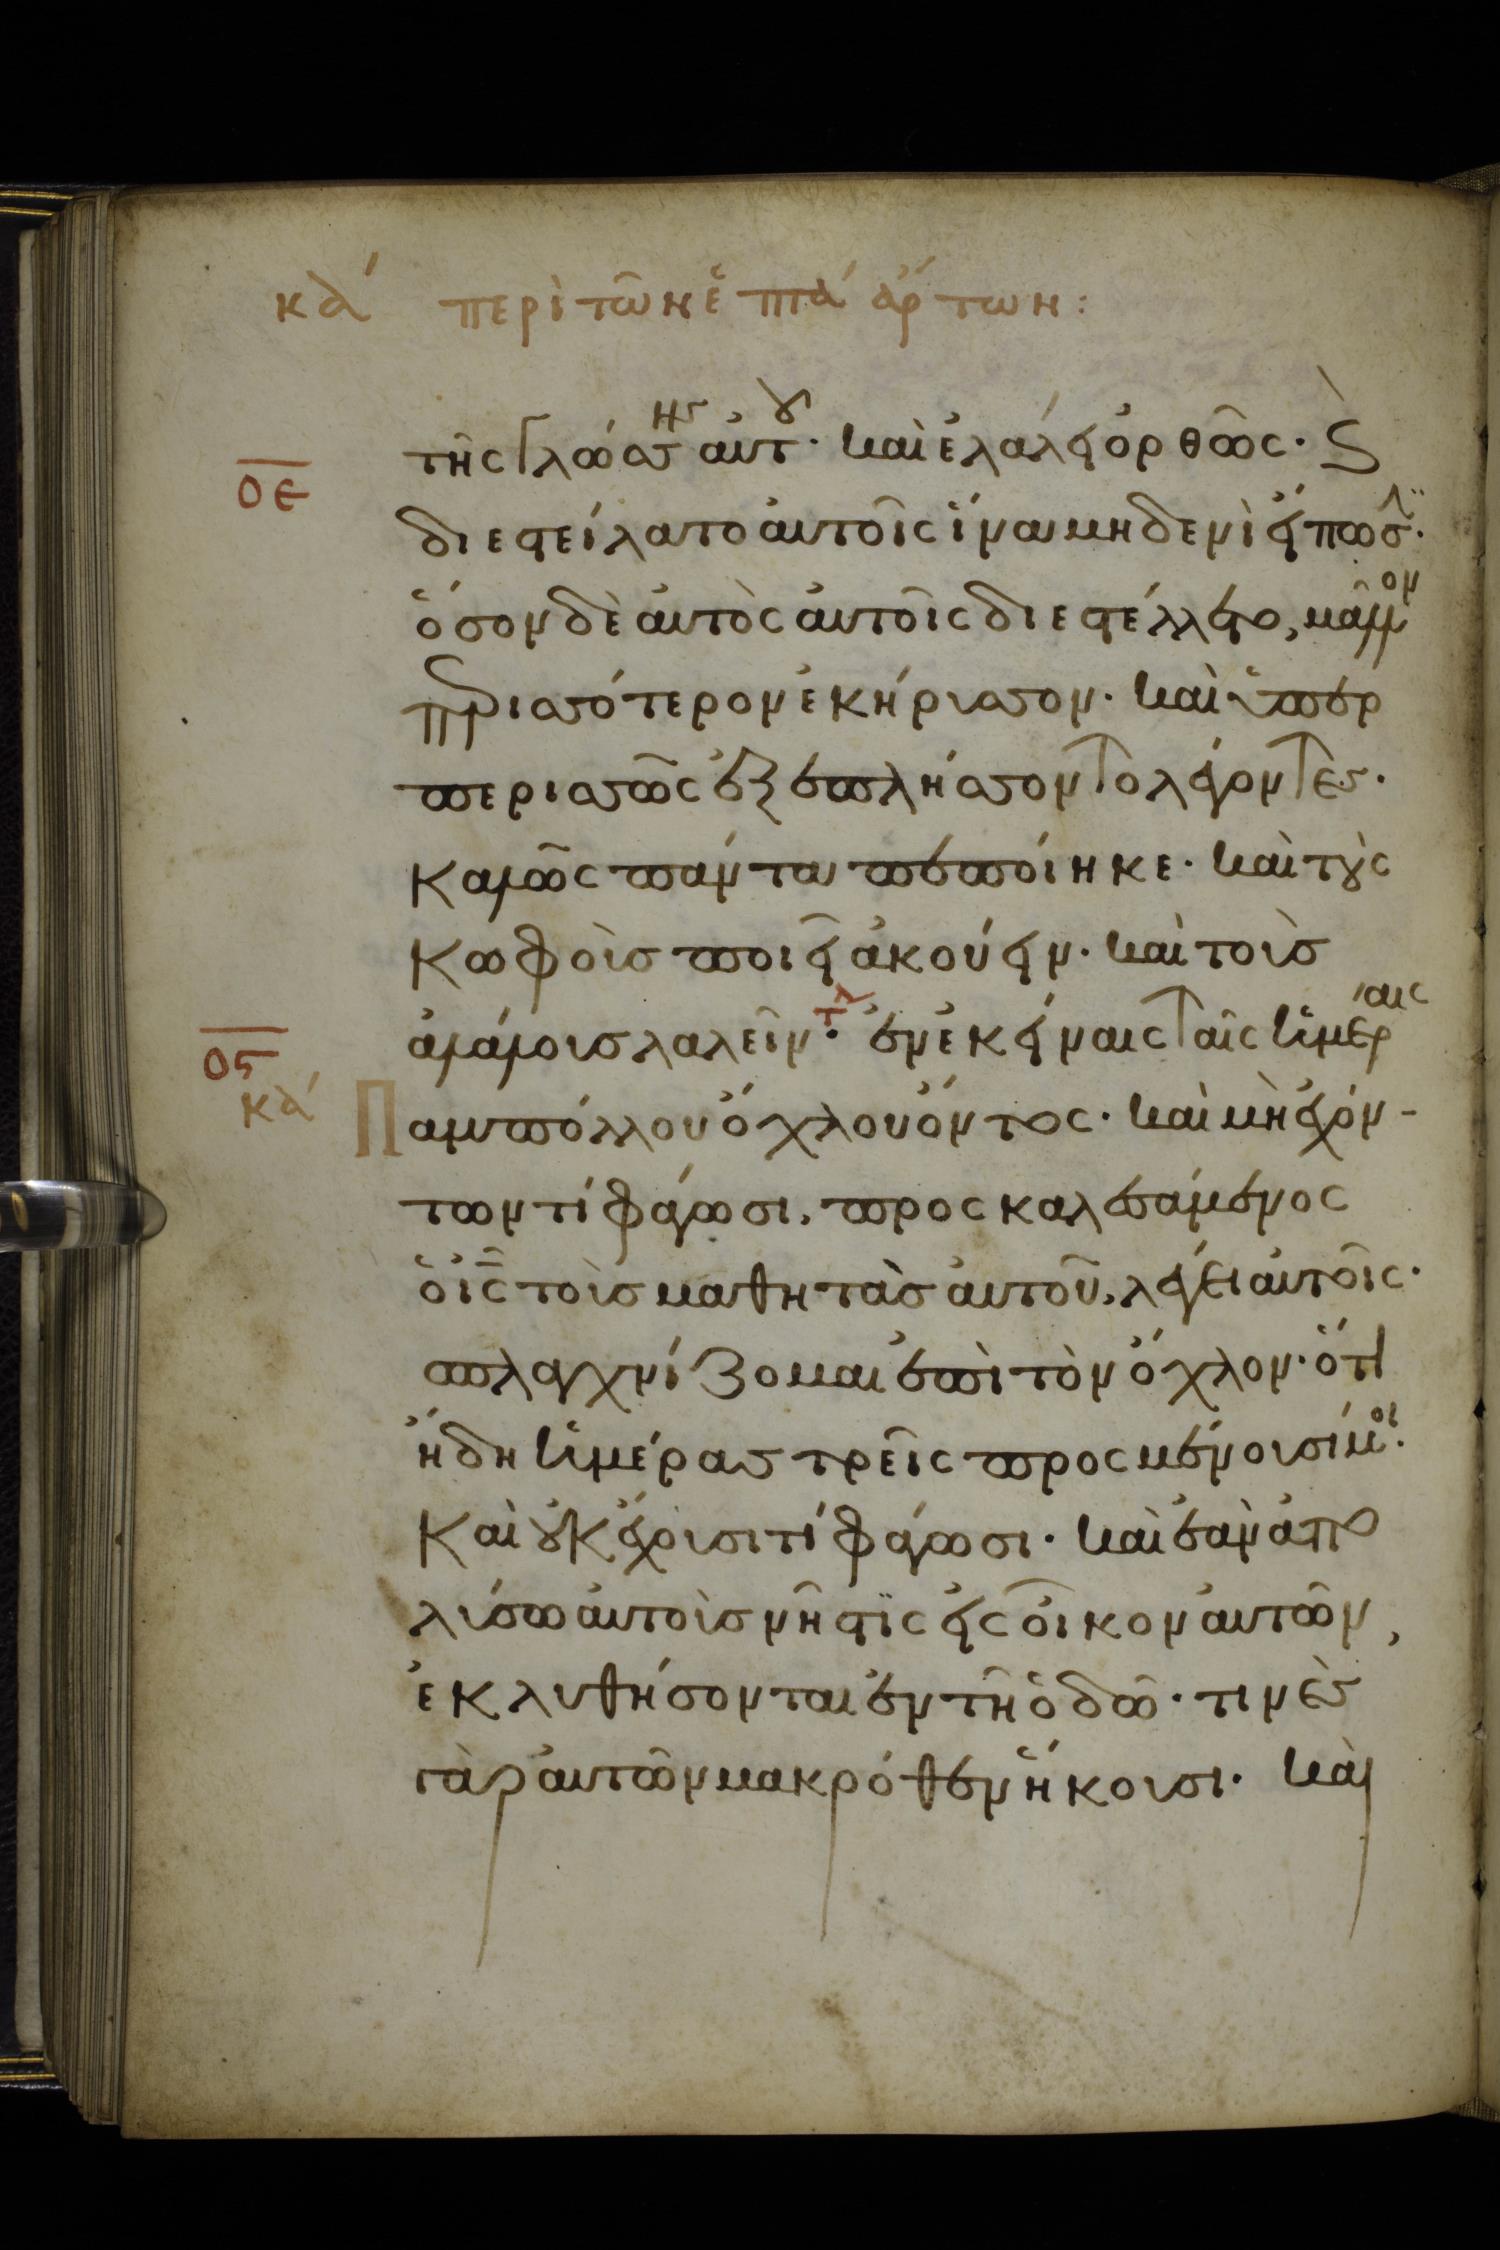 κα΄ περὶ τῶν ἑπτὰ ἄρτων:
τῆς γλώσσης αὐτοῦ· καὶ ἐλάλει ὀρθῶς· ϛ̀
οε
διεστείλατο αὐτοῖς ἵνα μηδενὶ εἴπωσϊ·
ὅσον δὲ αὐτὸς αὐτοῖς διεστέλλετο, μᾶλλον
περισσότερον ἐκήρυσσον· καὶ ὑπερ
περισσῶς ἐξεπλήσσοντο λέγοντες·
Καλῶς πάντα πεποίηκε· καὶ τοὺς
Κωφοὺς ποιεῖ ἀκούειν· καὶ τοὺς
ἀλάλους λαλεῖν τλ· ἐν ἐκείναις ταῖς ἡμέραις
οϛ
κα΄ Παμπόλλου ὄχλου ὄντος· καὶ μὴ ἐχόν-
των τί φάγωσι, προσκαλεσάμενος
ὁ ις τοὺς μαθητὰς αὐτοῦ, λέγει αὐτοῖς·
σπλαγχνίζομαι ἐπὶ τὸν ὄχλον· ὅτι
ἤδη ἡμέρας τρεῖς προσμένουσί μοι·
Καὶ οὐκ ἔχουσι τί φάγωσι· καὶ ἐὰν ἀπο
λύσω αὐτοὺς νήστϊς εἰς οἶκον αὐτῶν,
ἐκλυθήσονται ἐν τῆ ὁδῶ· τινὲς
γὰρ αὐτῶν μακρόθεν ἥκουσι· καὶ